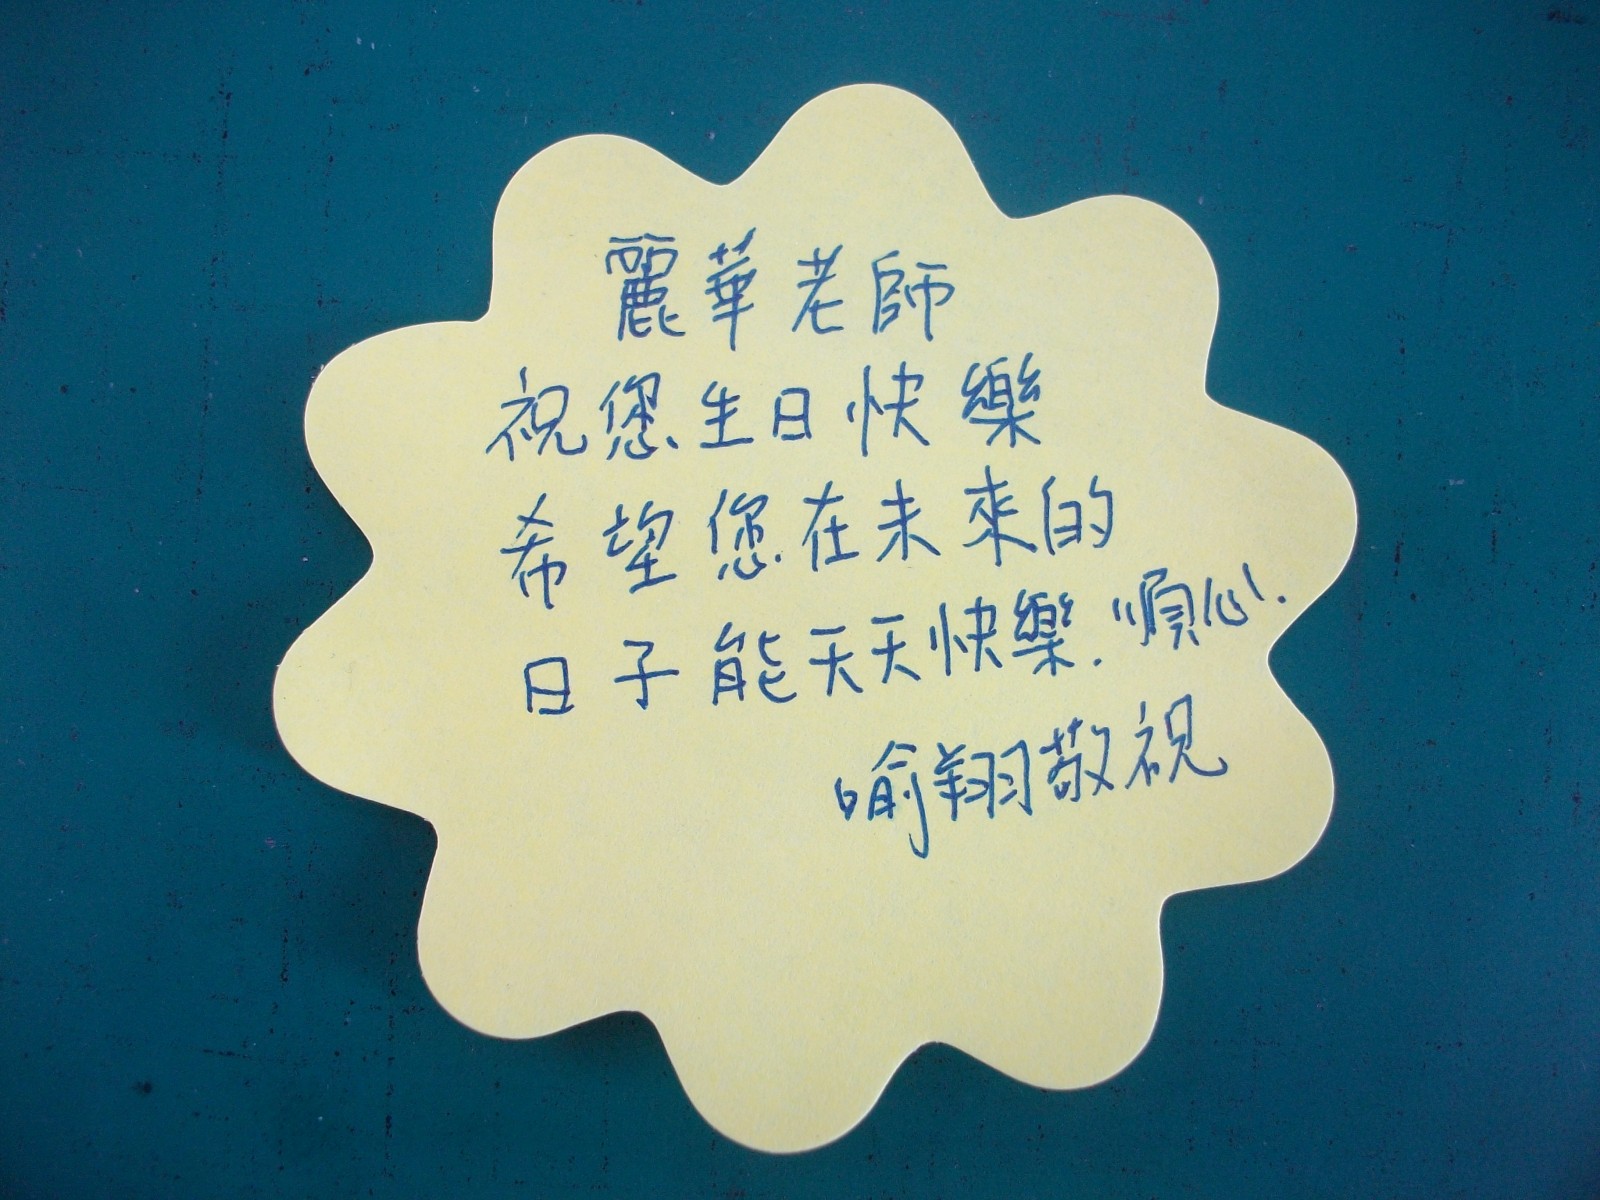 麗華老師
祝您生日快樂
希望您在未來的
日子能天天快樂.順心.
喻翔敬祝